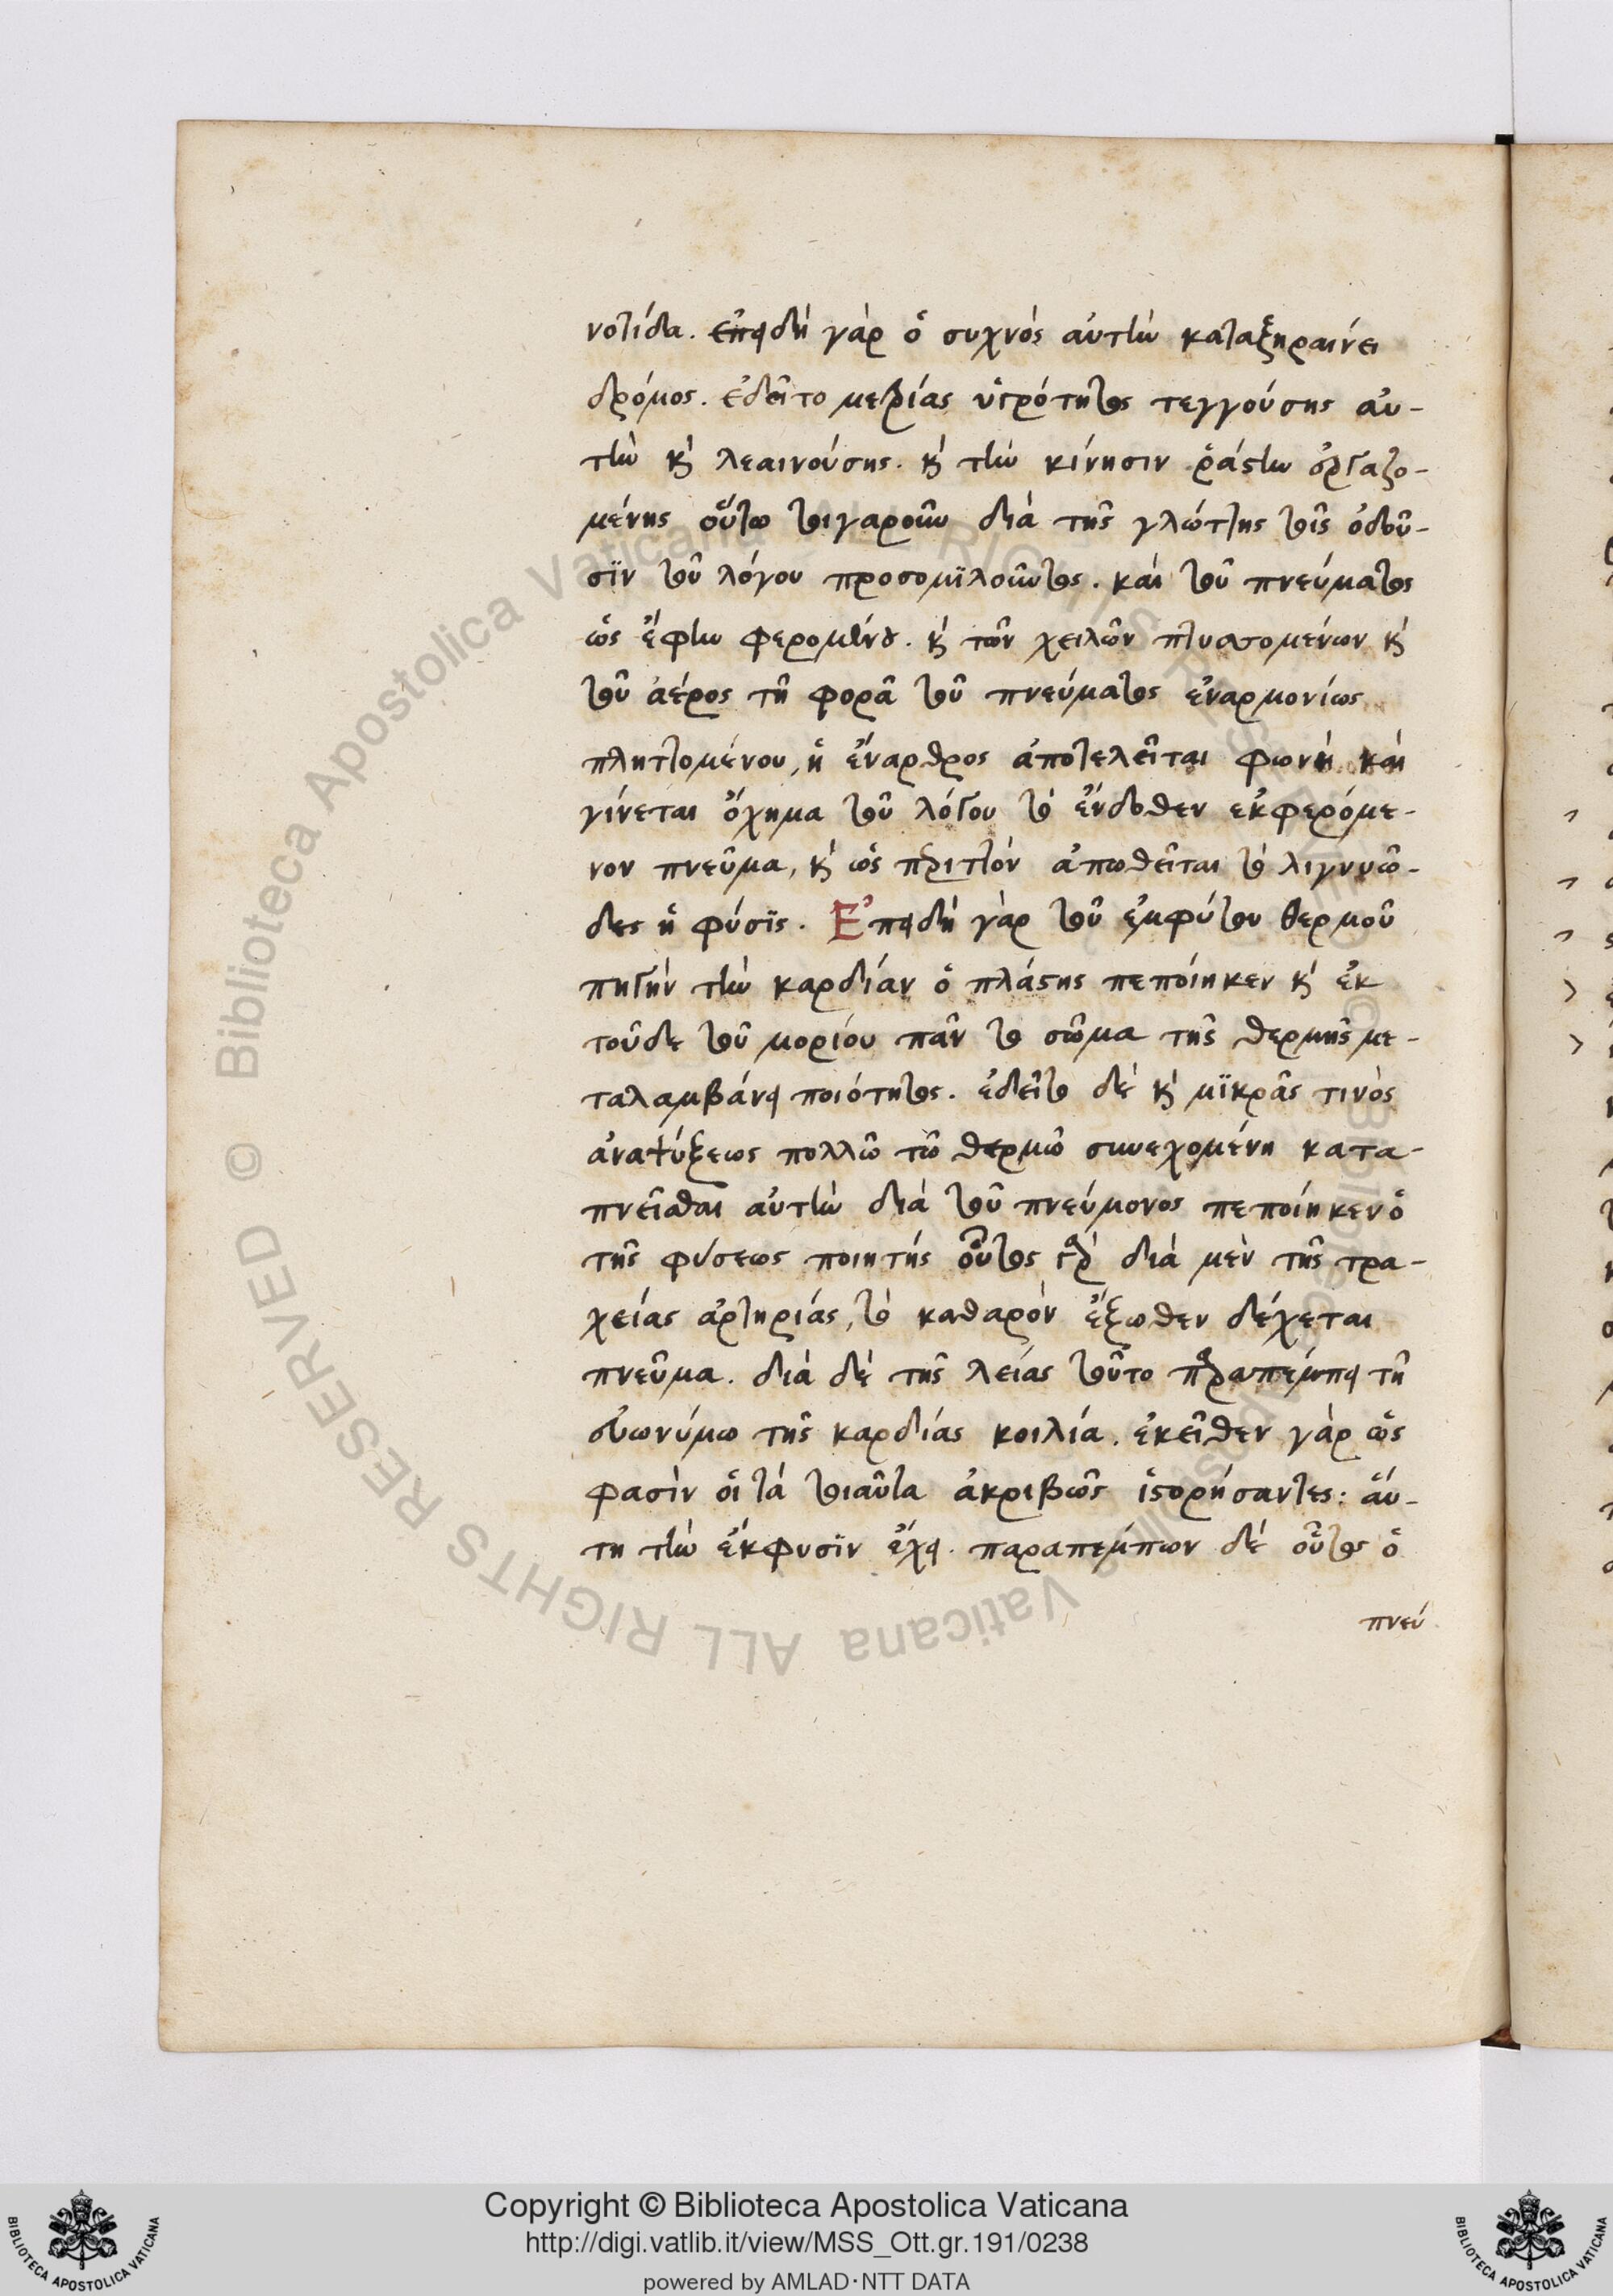 νοτίδα. ἐπειδὴ γὰρ ὁ συχνὸς αὐτὴν καταξηραίνει
δρόμος. ἐδεῖτο μετρίας ὑγρότητος τεγγούσης αὐ-
τὴν καὶ λεαινούσης. καὶ τὴν κίνησιν ῥάστην ἐργαζο-
μένης οὕτω τοιγαροῦν διὰ τῆς γλώττης τοῖς ὀδοῦ-
σϊν τοῦ λόγου προσομϊλοῦντος. καὶ τοῦ πνεύματος
ὡς ἔφην φερομένου. καὶ τῶν χειλῶν πτυσσομένων καὶ
τοῦ ἀέρος τῇ φορᾷ τοῦ πνεύματος ἐναρμονίως
πληττομένου, ἡ ἔναρθρος ἀποτελεῖται φωνὴ καὶ
γίνεται ὄχημα τοῦ λόγου τὸ ἔνδοθεν ἐκφερόμε-
νον πνεῦμα, καὶ ὡς περιττὸν ἀπωθεῖται τὸ λιγνυῶ-
δες ἡ φύσϊς. Ἐπειδὴ γὰρ τοῦ ἐμφύτου θερμοῦ
πηγὴν τὴν καρδίαν ὁ πλάστης πεποίηκεν καὶ ἐκ
τοῦδε τοῦ μορίου πᾶν τὸ σῶμα τῆς θερμῆς με-
ταλαμβάνει ποιότητος. ἐδεῖτο δὲ καὶ μϊκρᾶς τινὸς
ἀναψύξεως πολλῷ τῷ θερμῷ συνεχομένη κατα-
πνεῖσθαι αὐτὴν διὰ τοῦ πνεύμονος πεποίηκεν ὁ
τῆς φύσεως ποιητής οὗτος γὰρ διὰ μὲν τῆς τρα-
χείας ἀρτηρίας, τὸ καθαρὸν ἔξωθεν δέχεται
πνεῦμα. διὰ δὲ τῆς λείας τοῦτο παραπέμπει τῇ
εὐωνύμω τῆς καρδίας κοιλία. ἐκεῖθεν γὰρ ὥς
φασὶν οἱ τὰ τοιαῦτα ἀκριβῶς ἱστορήσαντες: αὕ-
τη τὴν ἔκφυσϊν ἔχει. παραπέμπων δὲ οὗτος ὁ
πνεύ
Copyright © Biblioteca Apostolica Vaticana
http://digi.vatlib.it/view/MSS_Ott.gr.191/0238
powered by AMLAD·NTT DATA
BIBLIOTECA APOSTOLICA VATICANA
BIBLIOTECA APOSTOLICA VATICANA
© Biblioteca Apostolica Vaticana ALL RIGHTS RESERVED
© Biblioteca Apostolica Vaticana ALL RIGHTS RESERVED